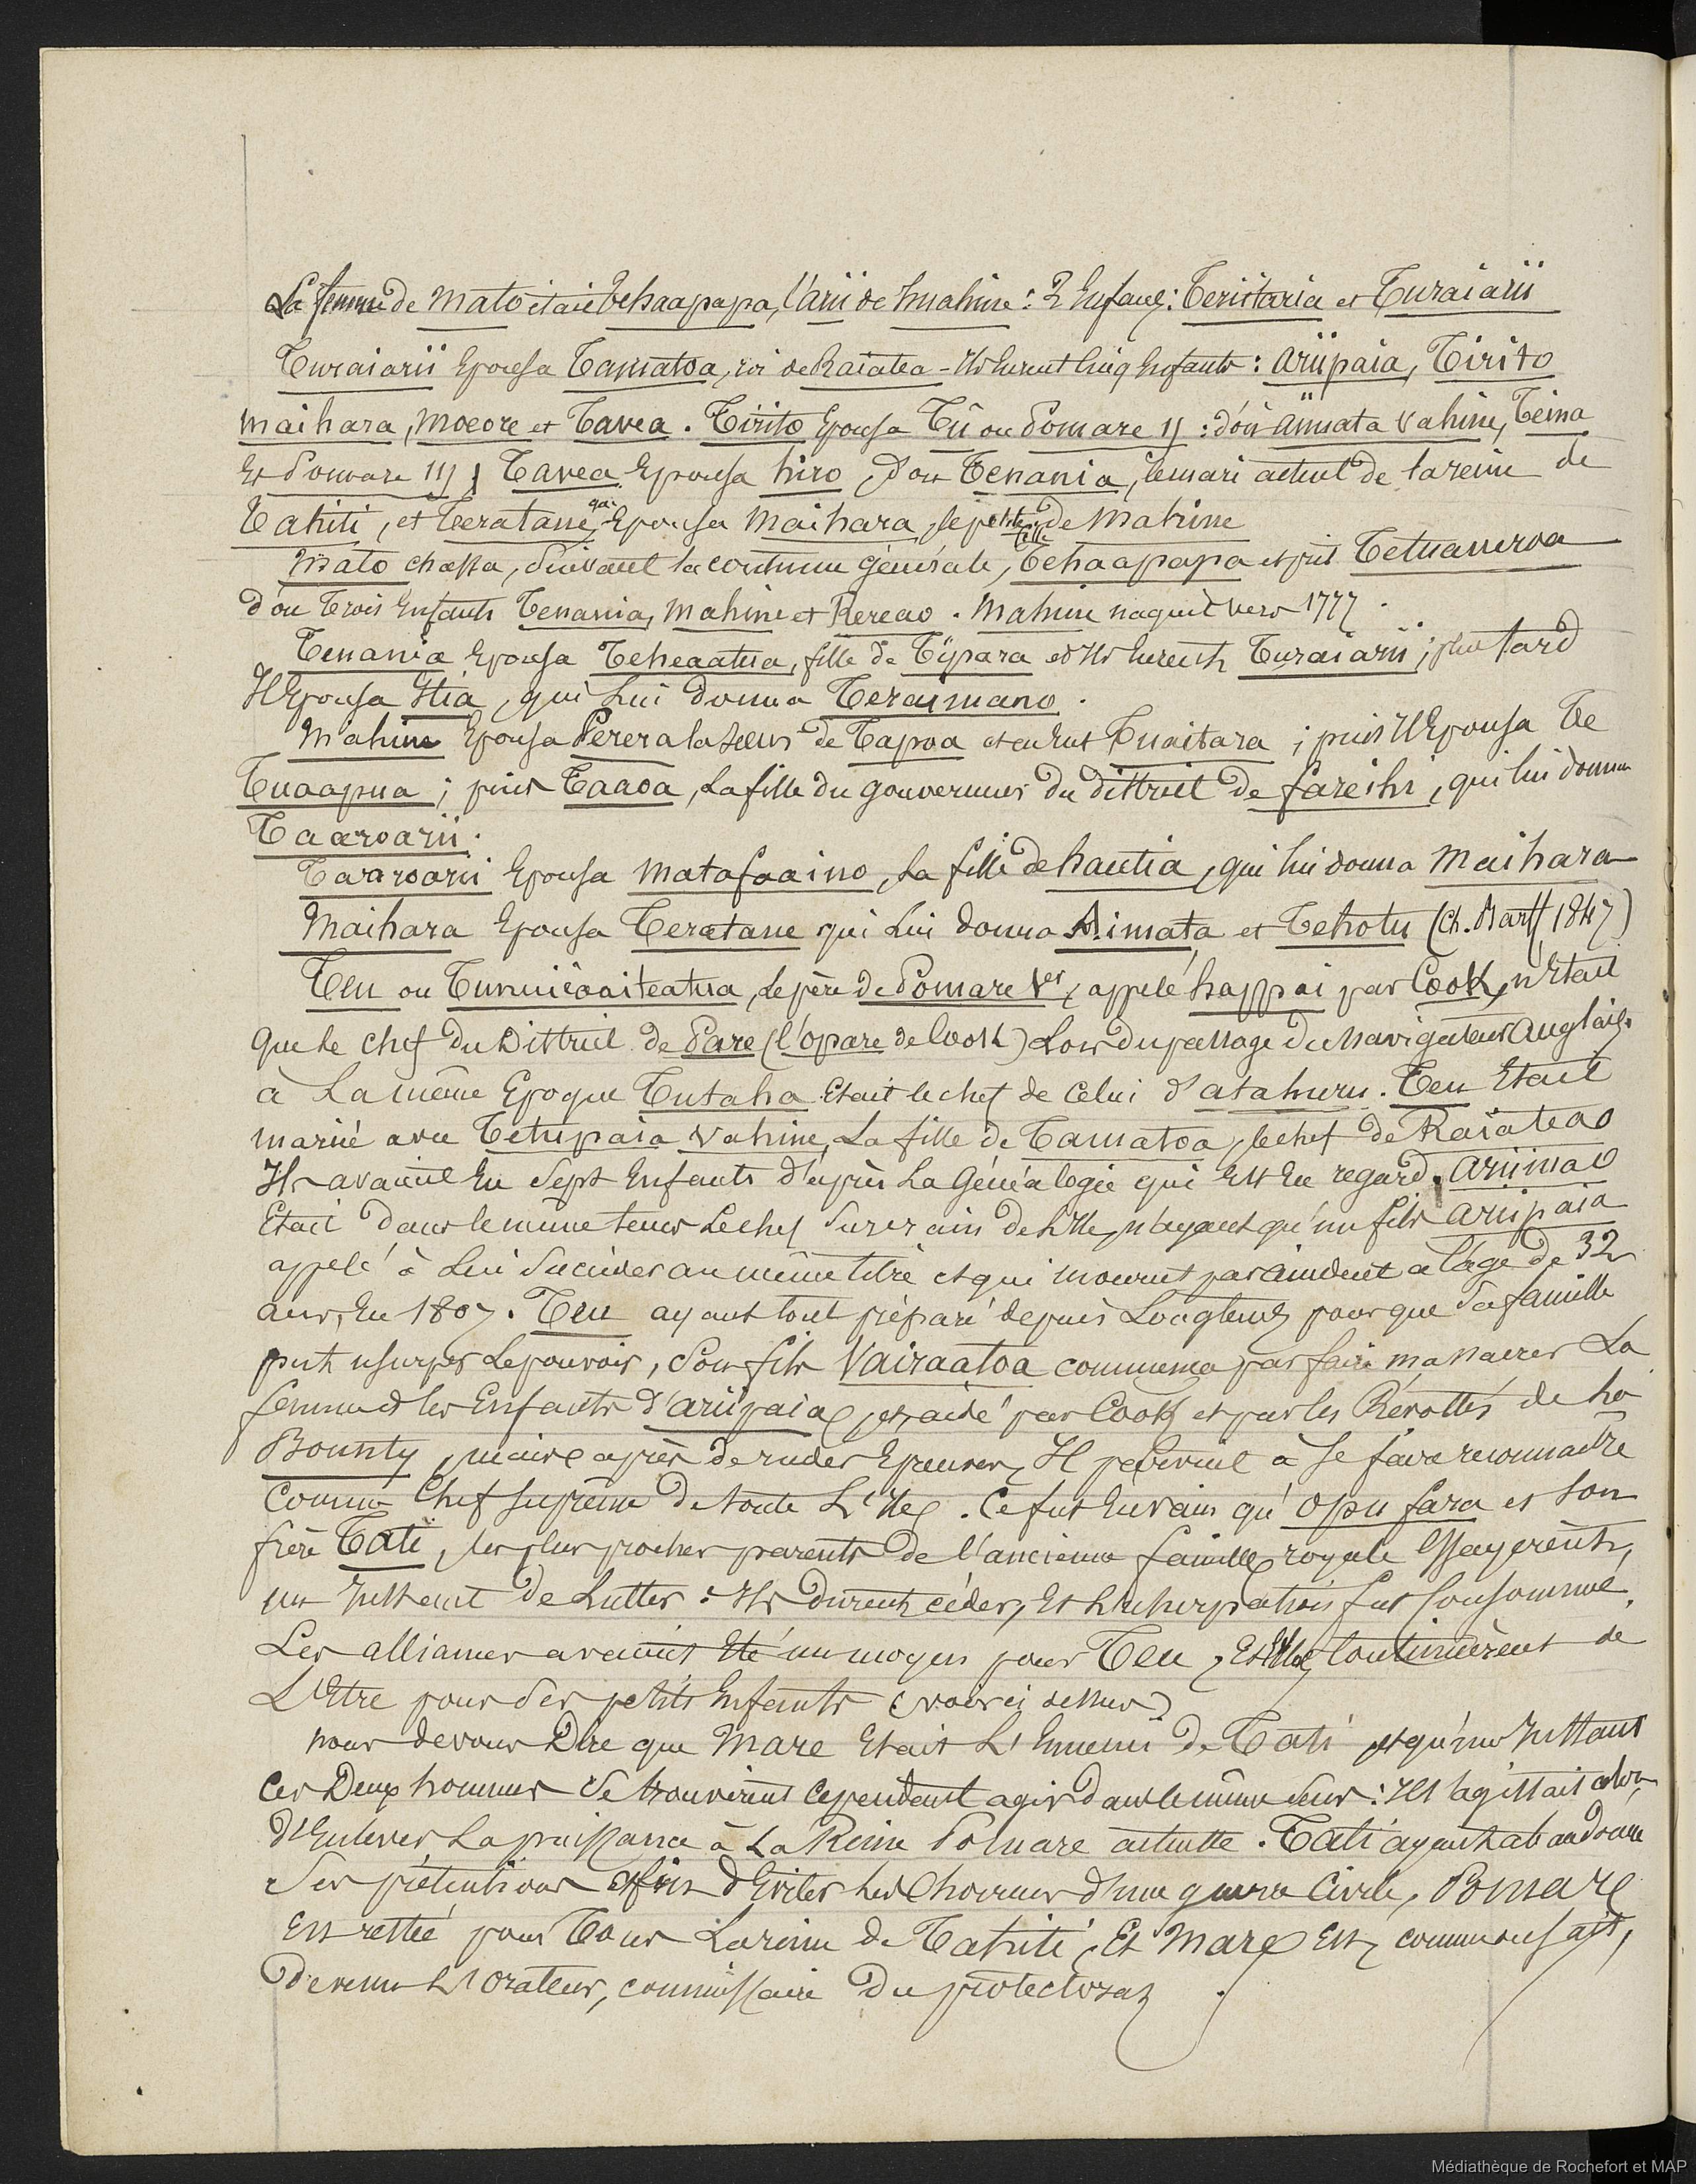 La femme de Mato était Tehaapapa, l'arii de huahine : 2 Enfans : Teriitaria et Turaiarii
Turaiarii Epousa Tamatoa, roi de Raiatea - Ils Eurent Cinq Enfants : Ariipaia, Tirito
Maihara, Moeore et Tavea . Tirito Epousa Tû ou Pomare II : d'où Aimata Vahine, Teina
Et Pomare III ; Tavea Epousa hiro , D'ou Tenania, le mari actuel de la reine de
Tahiti , et Teratane, qui Epousa Maihara, la petite fille de Mahine
Mato chassa, suivant la coutume générale, Tehaapapa et prit Tetuaveroa
d'ou Trois Enfants Tenania, Mahine et Rereao . Mahine naquit vers 1777 .
Tenania Epousa Teheaatua, fille de Tïpara et Ils Eurent Turaiarii ; plus tard
Il Epousa Itia , qui Lui donna Teraimano .
Mahine Epousa Perera la Soeur de Tapoa et eut Tuaitara ; puis Il Epousa Te
Tuaapua ; puis Taaoa , La fille du gouverneur du district de fareihi , qui lui donna
Taaroarii .
Taaroarii Epousa Matafaaino , La fille de hautia , qui lui donna Maihara
Maihara Epousa Teratane qui Lui donna Aimata et Tehotu (Ch. Barff 1847)
Teu ou Tunuiêaaiteatua , Le père de Pomare Ier , appelé happai par Cook , n'Etait
que le chef du District de Pare (l'opare de Cook) Lors du passage du Navigateur Anglais.
à La même Epoque Tutaha Etait le chef de celui d'atahuru . Teu Etait
marié avec Tetupaia Vahine , La fille de Tamatoa , le chef de Raiatea
Ils avaient Eu Sept Enfants d'après La Généalogie qui Est En regard . Ariimao
Etait dans le même tems Le chef Suzerain de L'Ile , n'ayant qu'un fils Ariipaia
appelé à Lui Succéder au même titre et qui mourut par accident à l'âge de 32
ans, En 1807 . Teu ayant tout préparé depuis Longtems pour que Sa famille
put usurper Le pouvoir , Son fils Vairaatoa commença par faire massacrer La
femme et les Enfants d'Ariipaia , et , aidé par Cook et par les Révoltés de La
Bounty , mais après de rudes Epreuves , Il parvint à Se faire reconnaître
Comme Chef Suprême de toute L'Ile . Ce fut En vain qu' Opu fara et Son
frère Tati , les plus proches parents de l'ancienne famille royale Essayèrent ,
un Instant de Lutter : Ils durent céder , Et L'usurpation fut Consommée .
Les alliances avaient Eté un moyen pour Teu , Et Elles Continuèrent de
L'Etre pour Ses petits Enfants (voir ci dessus)
Nous devons Dire que Mare Etait L'Ennemi de Tati et qu'un Instant
Ces Deux hommes Se trouvèrent Cependant agir dans le même Sens : Il s'agissait alors
d'Enlever La puissance à La Reine Pomare actuelle . Tati ayant abandonné
Ses prétentions afin d'Eviter Les horreurs d'une guerre Civile , Pomare
Est restée pour Tous La reine de Tahiti , Et Mare Est , comme on sait ,
Devenu L'Orateur , commissaire Du protectorat .
Médiathèque de Rochefort et MAP